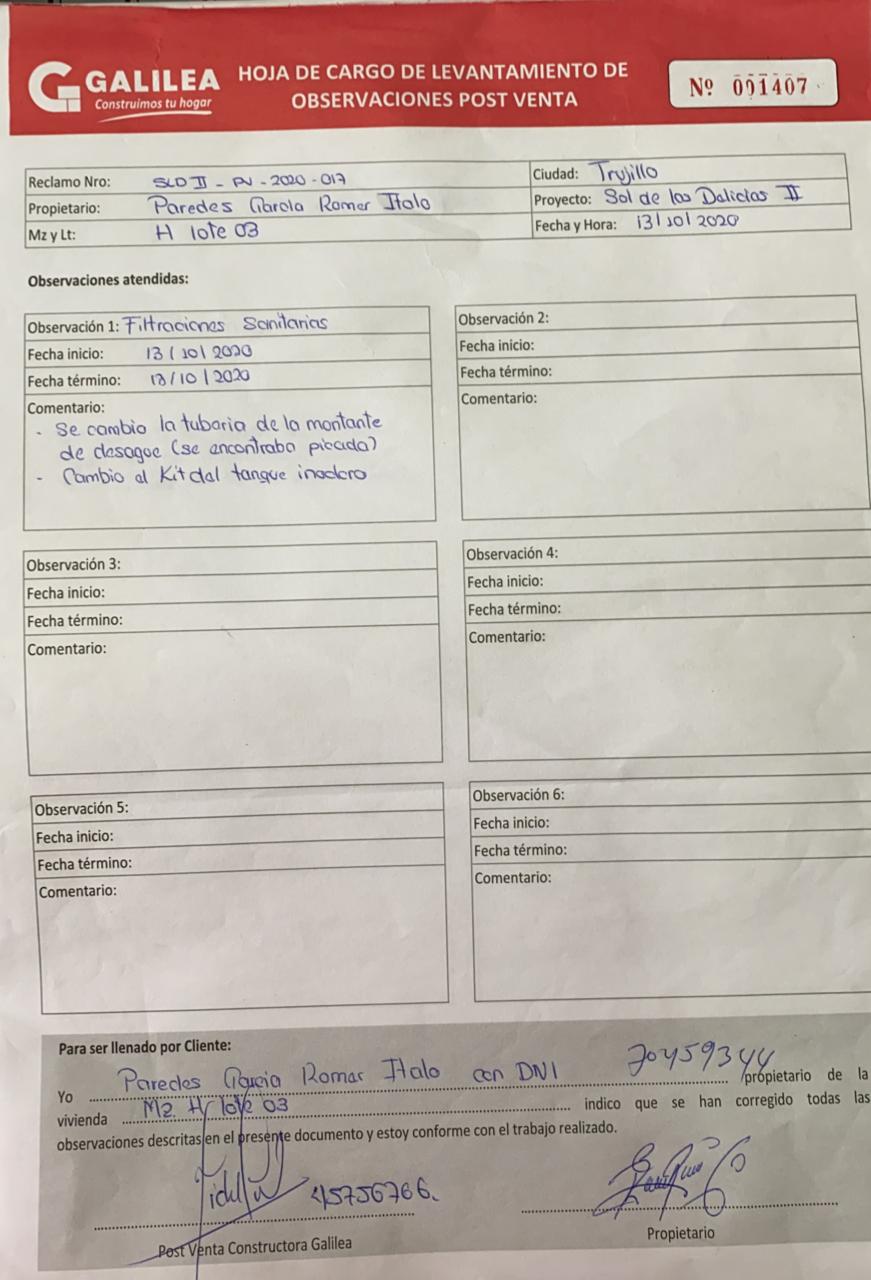 GALILEA
Construimos tu hogar
HOJA DE CARGO DE LEVANTAMIENTO DE
OBSERVACIONES POST VENTA
Nº 001407
Reclamo Nro: SLD II - PV - 2020 - 017
Ciudad: Trujillo
Propietario: Paredes Garcia Romer Italo
Proyecto: Sol de las Delicias II
Mz y Lt: H lote 03
Fecha y Hora: 13/10/2020
Observaciones atendidas:
Observación 1: Filtraciones Sanitarias
Fecha inicio: 13/10/2020
Fecha término: 13/10/2020
Comentario:
- Se cambio la tuberia de la montante
de desague (se encontraba picada)
- Cambio al Kit del tanque inodoro
Observación 2:
Fecha inicio:
Fecha término:
Comentario:
Observación 3:
Fecha inicio:
Fecha término:
Comentario:
Observación 4:
Fecha inicio:
Fecha término:
Comentario:
Observación 5:
Fecha inicio:
Fecha término:
Comentario:
Observación 6:
Fecha inicio:
Fecha término:
Comentario:
Para ser llenado por Cliente:
Yo Paredes Garcia Romer Italo con DNI 70459344 /propietario de la
vivienda Mz H lote 03 indico que se han corregido todas las
observaciones descritas en el presente documento y estoy conforme con el trabajo realizado.
45756766.
Post Venta Constructora Galilea
Propietario